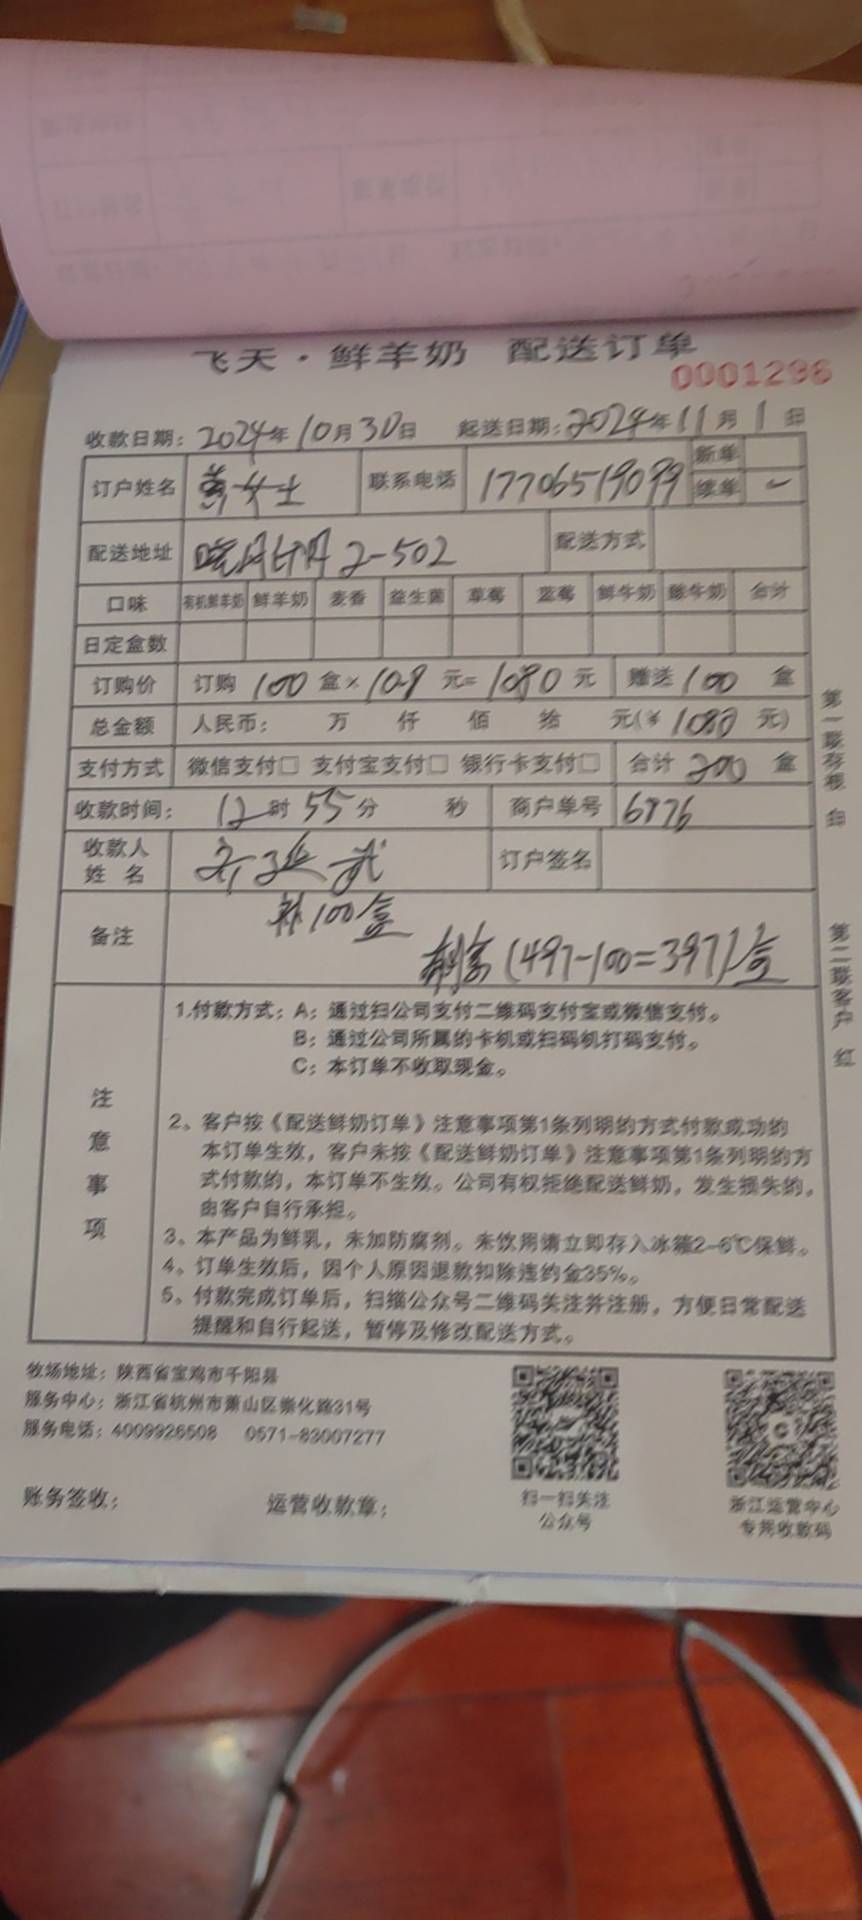 飞天·鲜羊奶 配送订单
0001296
收款日期：2024年10月30日 起送日期：2024年11月1日
订户姓名 黄女士 联系电话 17706519099 新单
续单 ✓
配送地址 2-502 配送方式
口味 有机鲜羊奶 鲜羊奶 麦香 益生菌 草莓 蓝莓 鲜牛奶 酸牛奶 合计
日定盒数
订购价 订购 100 盒×10.8 元=1080 元 赠送 100 盒
总金额 人民币： 万 仟 佰 拾 元(￥1080 元)
支付方式 微信支付□ 支付宝支付□ 银行卡支付□ 合计 200 盒
收款时间： 12时55分 秒 商户单号 6876
收款人
姓 名
订户签名
备注 补100盒
剩余(497-100=397)盒
注意事项
1.付款方式：A：通过扫公司支付二维码支付宝或微信支付。
B：通过公司所属的卡机或扫码机打码支付。
C：本订单不收取现金。
2、客户按《配送鲜奶订单》注意事项第1条列明的方式付款成功的
本订单生效，客户未按《配送鲜奶订单》注意事项第1条列明的方
式付款的，本订单不生效。公司有权拒绝配送鲜奶，发生损失的，
由客户自行承担。
3、本产品为鲜乳，未加防腐剂。未饮用请立即存入冰箱2-6℃保鲜。
4、订单生效后，因个人原因退款扣除违约金35%。
5、付款完成订单后，扫描公众号二维码关注并注册，方便日常配送
提醒和自行起送，暂停及修改配送方式。
第一联存根 白
第二联客户 红
牧场地址：陕西省宝鸡市千阳县
服务中心：浙江省杭州市萧山区崇化路31号
服务电话：4009926508 0571-83007277
账务签收： 运营收款章：
扫一扫关注
公众号
浙江运营中心
专用收款码